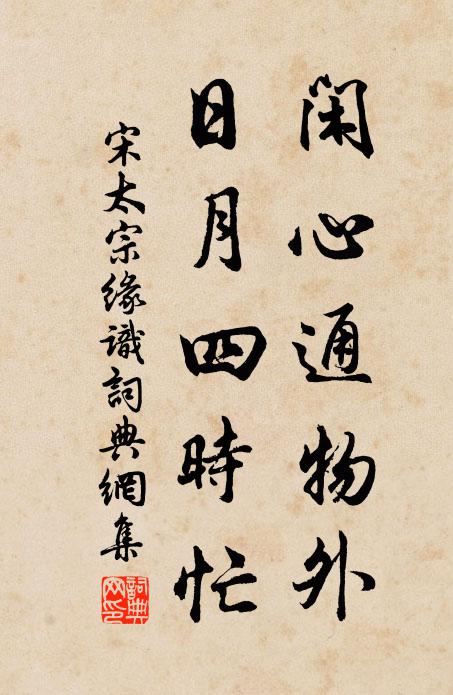 閑心通物外
日月四時忙
宋太宗緣識詞典網集
詞典
网印